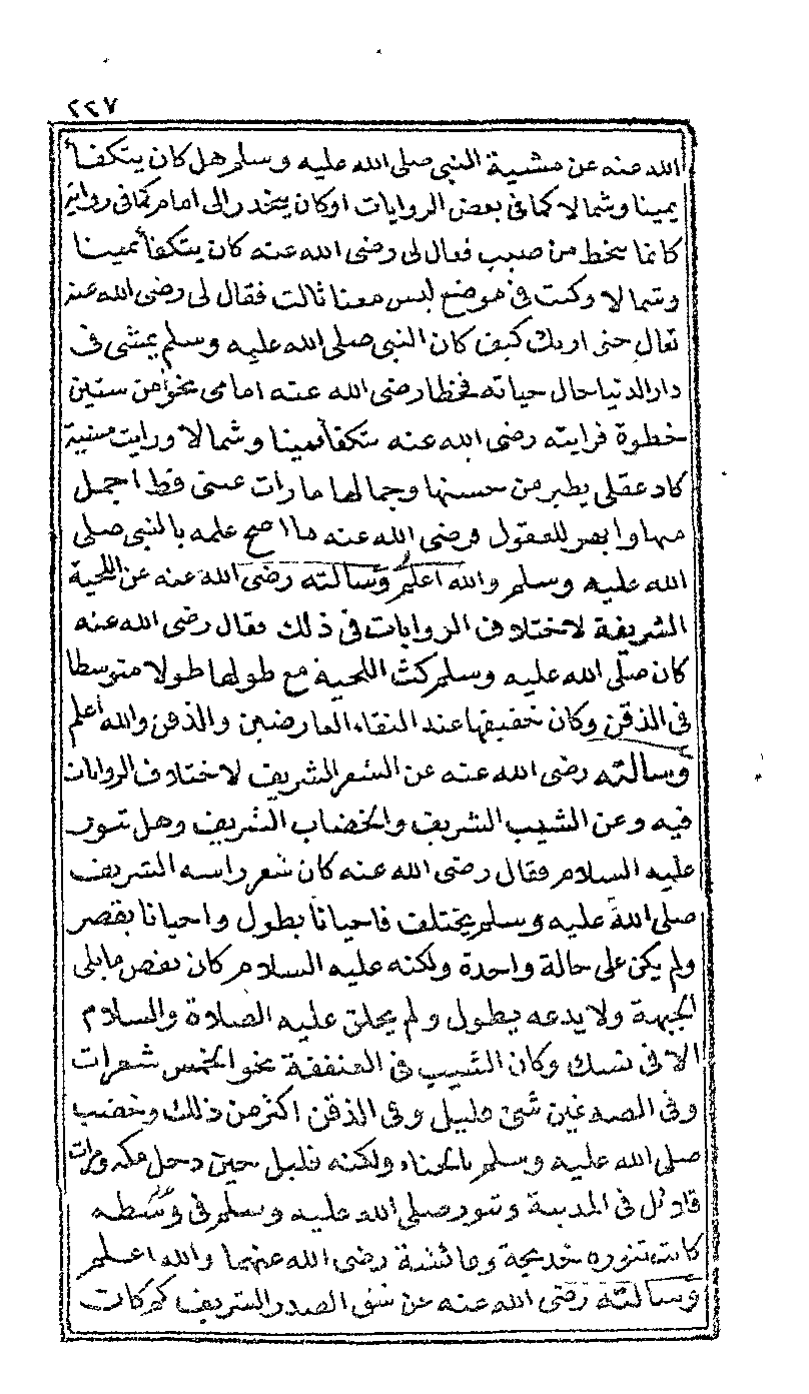 ٢٢٧
الله عنه عن مشية النبي صلى الله عليه وسلم هل كان يتكفأ
يمينا وشمالا كما في بعض الروايات اوكان ينحدر الى امام كما في رواية
كانما ينحط من صبب فقال لى رضى الله عنه كان يتكفأ يمينا
وشمالا وكنت في موضع ليس معنا ثالث فقال لى رضى الله عنه
تعال حتى اريك كيف كان النبي صلى الله عليه وسلم يمشى في
دار الدنيا حال حياته فخطا رضى الله عنه امامى نحوا من ستين
خطوة فرايته رضى الله عنه يتكفأ يمينا وشمالا ورايت مشية
كاد عقلى يطير من حسنها وجمالها ما رات عينى قط اجمل
منها وابهر للعقول فرضى الله عنه ما اصح علمه بالنبي صلى
الله عليه وسلم والله اعلم وسالته رضى الله عنه عن اللحية
الشريفة لاختلاف الروايات في ذلك فقال رضى الله عنه
كان صلى الله عليه وسلم كث اللحية مع طولها طولا متوسطا
في الذقن وكان خفيفها عند التقاء العارضين والذقن والله اعلم
وسالته رضى الله عنه عن الشعر الشريف لاختلاف الروايات
فيه وعن الشيب الشريف والخضاب الشريف وهل تنور
عليه السلام فقال رضى الله عنه كان شعر راسه الشريف
صلى الله عليه وسلم يختلف فاحيانا يطول واحيانا يقصر
ولم يكن على حالة واحدة ولكنه عليه السلام كان يقص ما يلى
الجبهة ولا يدعه يطول ولم يحلق عليه الصلاة والسلام
الا في نسك وكان الشيب في العنفقة نحو الخمس شعرات
وفي الصدغين شئ قليل وفي الذقن اكثر من ذلك وخضب
صلى الله عليه وسلم بالحناء ولكنه قليل حين دخل مكة ومرات
قلائل في المدينة وتنور صلى الله عليه وسلم في وسطه
كانت تنوره خديجة وعائشة رضى الله عنهما والله اعلم
وسالته رضى الله عنه عن شق الصدر الشريف كم كانت